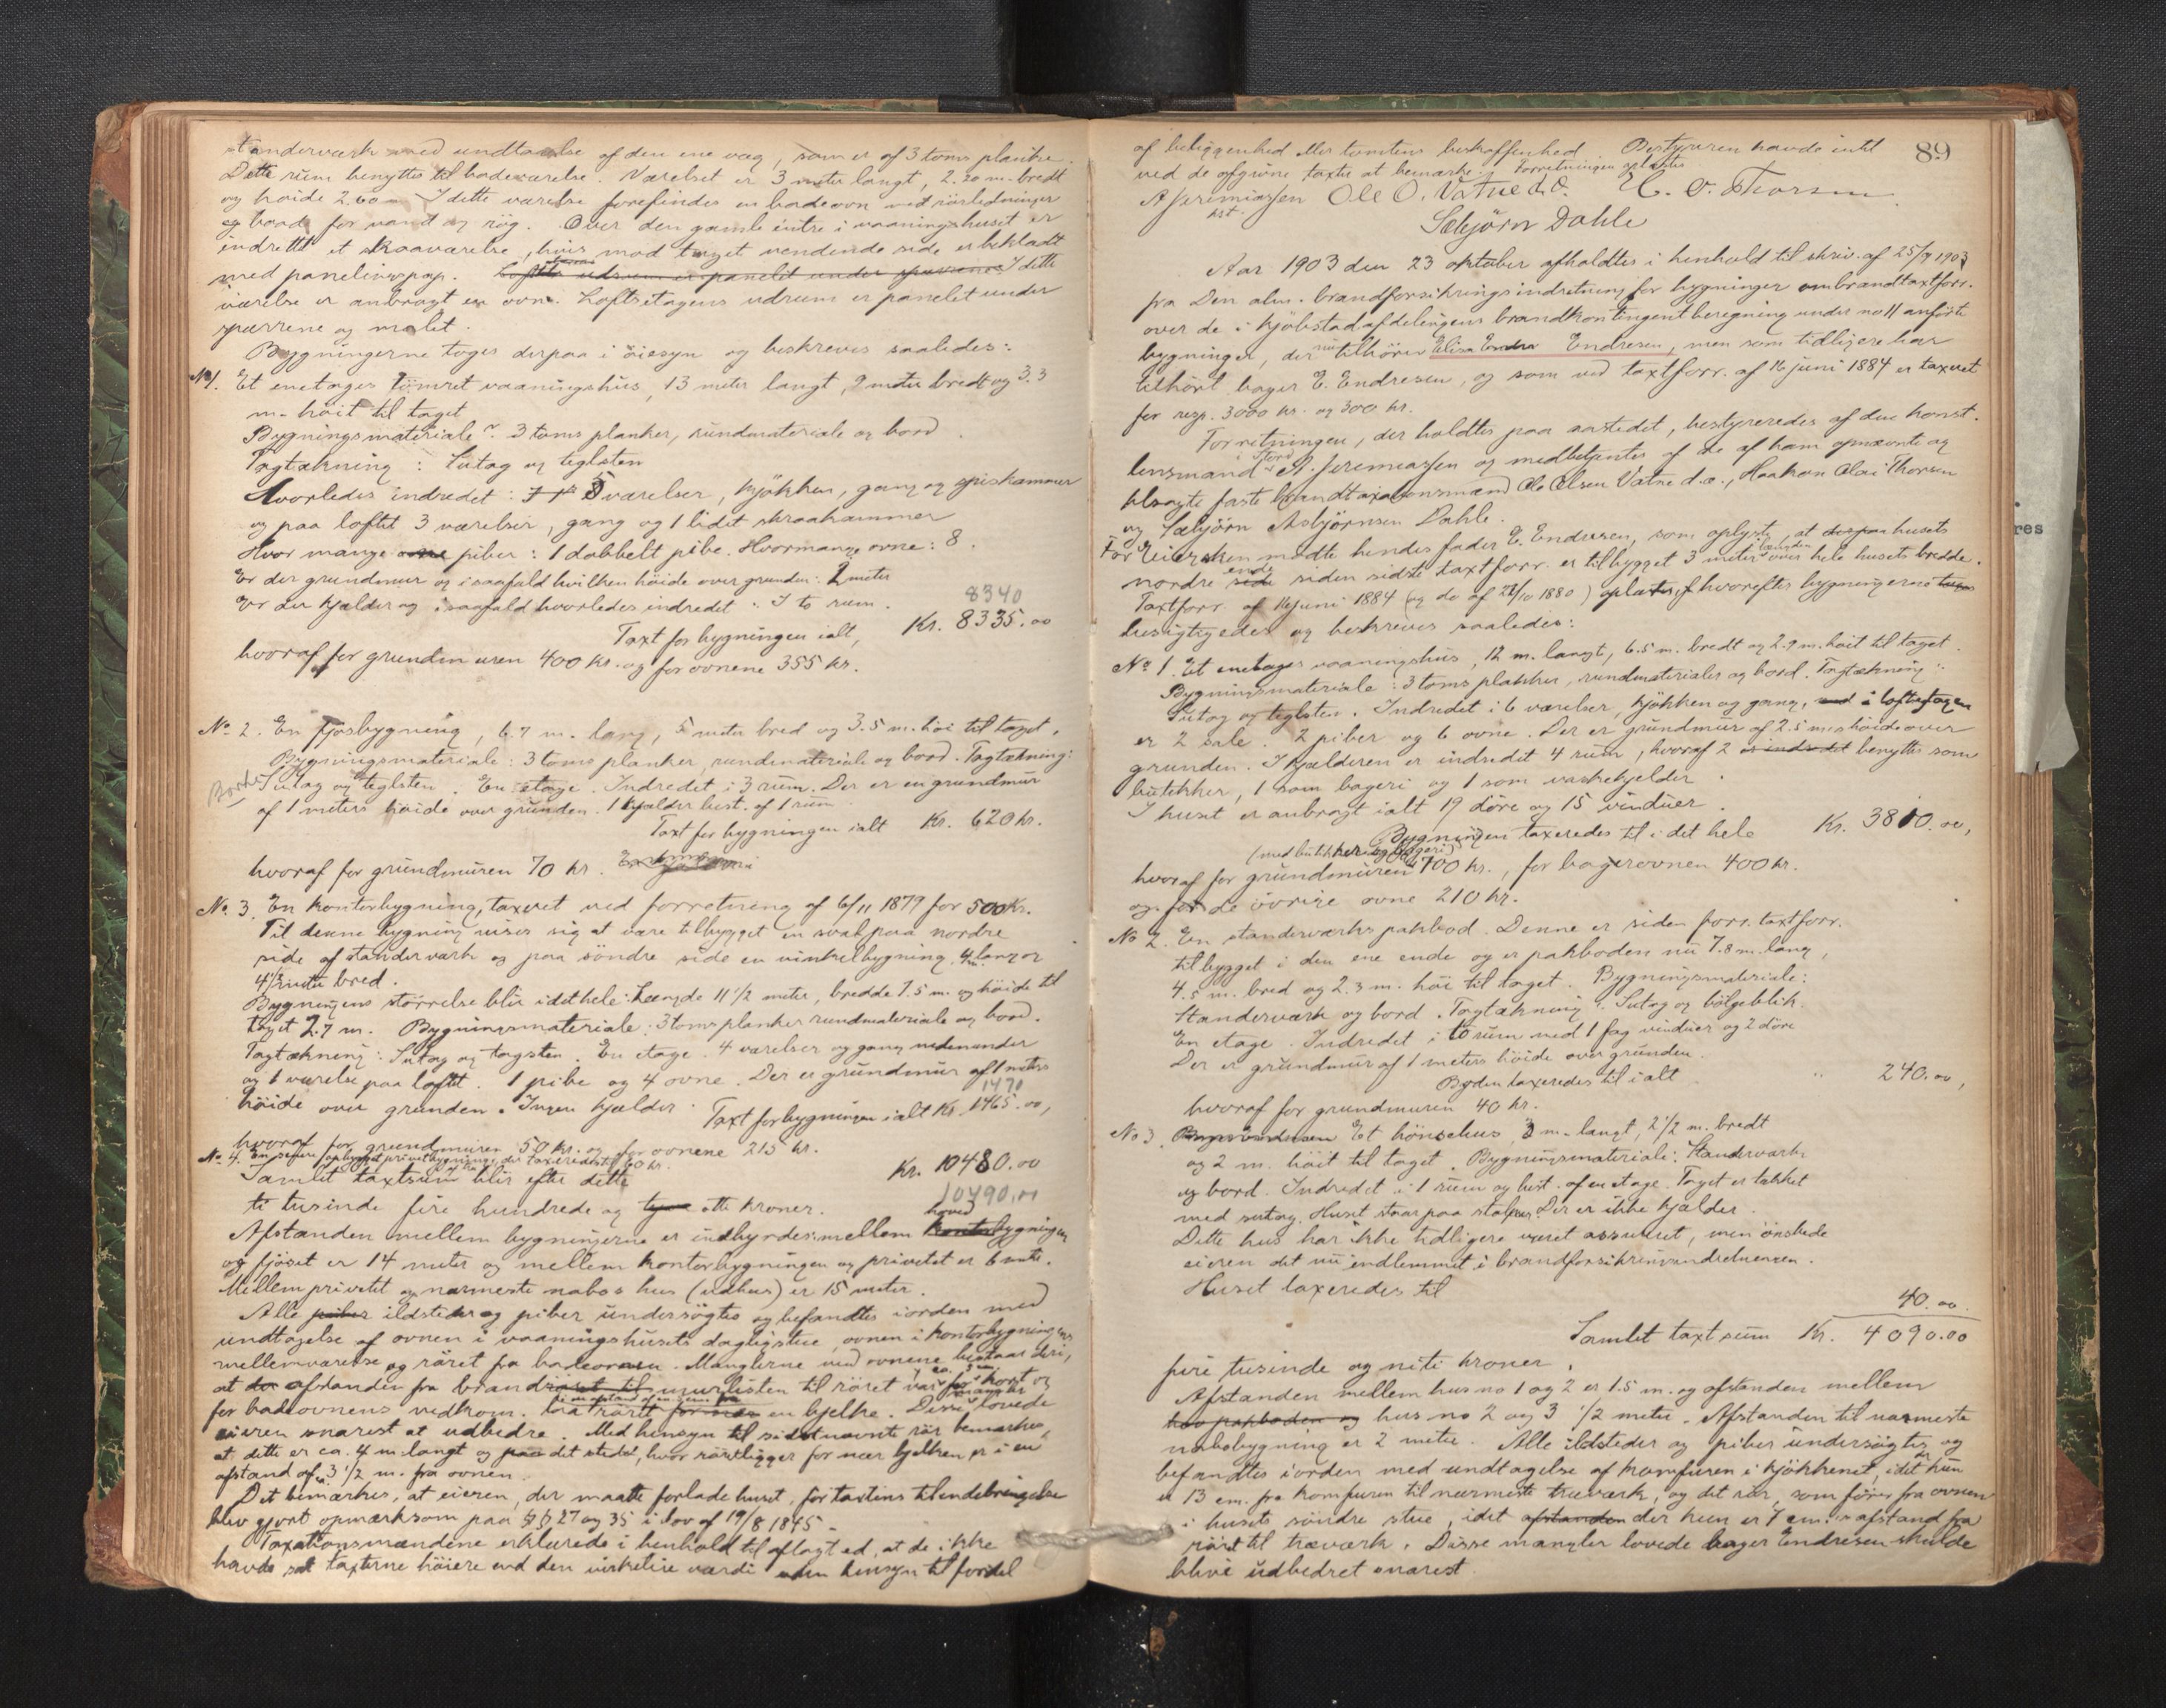 standerværk med undtagelse af den ene væg, som er af 3 toms planker.
Dette rum benyttes til badeværelse. Værelset er 3 meter langt, 2.20 m. bredt
og höide 2.60 m. I dette værelse forefindes en badeovn med rörledninger
og baade for vand og rög. Over den gamle entre i vaaningshuset er
indrettet et skraaværelse, hvis mod taget vendende side er beklædt
med panelingspap. I dette
værelse er anbragt en ovn. Loftsetagens udrum er panelet under
sparrene og malet.
Bygningerne toges derpaa i öiesyn og beskreves saaledes:
No 1. Et enetages tömret vaaningshus, 13 meter langt, 9 meter bredt og 3.3
m. höit til taget
Bygningsmateriale: 3 toms planker, rundmateriale og bord.
Tagtækning: Sutag og teglsten
Hvorledes indredet: 5 værelser, kjökken, gang og spiskammer
og paa loftet 3 værelser, gang og 1 lidet skraakammer
Hvor mange piber: 1 dobbelt pibe. Hvormange ovne: 8.
Er der grundmur og i saafald hvilken höide over grunden: 2 meter
Er der kjælder og i saafald hvorledes indredet: I to rum.
8340
Taxt for bygningen ialt, Kr. 8335.00
hvoraf for grundmuren 400 kr. og for ovnene 355 kr.
No. 2. En fjösbygning, 6.7 m. lang, 5 meter bred og 3.5 m. höi til taget.
Bygningsmateriale: 3 toms planker, rundmateriale og bord. Tagtækning:
Borte Sutag og teglsten. En etage. Indredet i 3 rum. Der er en grundmur
af 1 meters höide over grunden. 1 kjælder best. af 1 rum
Taxt for bygningen ialt Kr. 620 kr.
hvoraf for grundmuren 70 kr.
No. 3. En kontorbygning, taxeret ved forretning af 6/11 1879 for 500 Kr.
Til denne bygning viser sig at være tilbygget en sval paa nordre
side af standerværk og paa söndre side en vinkelbygning 4 m. lang og
4 1/2 meter bred.
Bygningens störrelse blir idet hele: Længde 11 1/2 meter, bredde 7.5 m. og höide til
taget 2.7 m. Bygningsmateriale: 3 toms planker rundmateriale og bord.
Tagtækning: Sutag og tagsten. En etage. 4 værelser og gang nedenunder
og 1 værelse paa loftet. 1 pibe og 4 ovne. Der er grundmur af 1 meters
1470
höide over grunden. Ingen kjælder. Taxt for bygningen ialt Kr 1465.00,
hvoraf for grundmuren 50 kr. og for ovnene 215 kr.
No. 4. En senere opbygget privetbygning, der taxeredes til 60 kr.
Samlet taxtsum blir efter dette Kr. 10480.00
10490.00
ti tusinde fire hundrede og otti kroner.
Afstanden mellem bygningerne er indbyrdes: mellem hovedbygningen
og fjöset er 14 meter og mellem kontorbygningen og privetet er 6 mete.
Mellem privetet og nærmeste nabos hus (udhus) er 15 meter.
Alle ildsteder og piber undersögtes og befandtes iorden med
undtagelse af ovnen i vaaningshusets dagligstue, ovnen i kontorbygningens
mellemværelse og röret fra badeovnen. Manglerne ved ovnene bestaar deri,
at afstanden fra murlisten til röret var for kort og
for badeovnens vedkom. en bjelke. Disse mangler lovede
eieren snarest at udbedre. Med hensyn til sidstnævnte rör bemærkes,
at dette er ca. 4 m. langt og det sted, hvor röret ligger for nær bjelken er i en
afstand af 3 1/2 m. fra ovnen.
Det bemærkes, at eieren, der maatte forlade huset för taxtens tilendebringelse
blev gjort opmærksom paa §§ 27 og 35 i lov af 19/8 1845.
Taxationsmændene erklærede i henhold til aflagt ed, at de ikke
havde sat taxterne höiere end den virkelige værdi uden hensyn til fordel
89
af beliggenhed eller tomtens beskaffenhed. Bestyreren havde intet
ved de afgivne taxter at bemærke. Forretningen sluttes
A Jeremiassen Ole O. Vatne d.æ. H. O. Thorsen
kst. Sæbjörn Dahle
Aar 1903 den 23 oktober afholdtes i henhold til skriv. af 25/9 1903
fra Den alm. brandforsikringsindretning for bygninger ombrandtaxtforr.
over de i kjöbstadafdelingens brandkontingentberegning under no 11 anförte
bygninger, der nu tilhörer Elisa Endresen, men som tidligere har
tilhört bager E. Endresen, og som ved taxtforr. af 16 juni 1884 er taxeret
for resp. 3000 kr. og 300 kr.
Forretningen, der holdtes paa aastedet, bestyreredes af den konst.
lensmand i Stord A. Jeremiassen og medbetjentes af de af ham opnævnte og
elsagte faste brandtaxationsmænd Ole Olsen Vatne d.æ., Haakon Olai Thorsen
og Sæbjörn Asbjörnsen Dahle.
For Eiersken mödte hendes fader E. Endresen, som oplyste, at husets
nordre ende siden sidste taxtforr. er tilbygget 3 meter i længden over hele husets bredde.
Taxtforr. af 16 juni 1884 (og do af 28/10 1880) oplæstes hvorefter bygningerne
besigtigedes og beskreves saaledes:
No 1. Et enetages vaaningshus, 12 m. langt, 6.5 m. bredt og 2.9 m. höit til taget.
Bygningsmateriale: 3 toms planker, rundmaterialer og bord. Tagtækning:
Sutag og teglsten. Indredet i 6 værelser, kjökken og gang, i loftsetagen
er 2 sale. 2 piber og 6 ovne. Der er grundmur af 2.5 m.s höide over
grunden. I kjælderen er indredet 4 rum, hvoraf 2 benyttes som
butikker, 1 som bageri og 1 som vaskekjelder.
I huset er anbragt ialt 19 döre og 15 vinduer.
Bygningen taxeredes til i det hele Kr. 3810.00,
(med butikker og bageri)
hvoraf for grundmuren 700 kr., for bagerovnen 400 kr.
og for de övrige ovne 210 kr.
No 2. En standerværks pakbod. Denne er siden forr. taxtforr.
tilbygget i den ene ende og er pakboden nu 7.8 m. lang,
4.5 m. bred og 2.3 m. höi til taget. Bygningsmateriale:
Standerværk og bord. Tagtækning: Sutag og bölgeblik.
En etage. Indredet i to rum med 1 fag vinduer og 2 döre
Der er grundmur af 1 meters höide over grunden.
Boden taxeredes til ialt " 240.00,
hvoraf for grundmuren 40 kr.
No 3. Et hönsehus 3 m. langt, 2 1/2 m. bredt
og 2 m. höit til taget. Bygningsmateriale: Standerværk
og bord. Indredet i 1 rum og best. af en etage. Taget er tækket
med sutag. Huset staar paa stolper. Der er ikke kjælder.
Dette hus har ikke tidligere været assureret, men önskede
eieren det nu indlemmet i brandforsikringsindretningen.
Huset taxeredes til 40.00.
Samlet taxt sum Kr. 4090.00
fire tusinde og niti kroner.
Afstanden mellem hus no 1 og 2 er 1.5 m. og afstanden mellem
hus no 2 og 3 1/2 meter. Afstanden til nærmeste
nabobygning er 2 meter. Alle ildsteder og piber undersögtes og
befandtes iorden med undtagelse af komfuren i kjökkenet, idet der kun
er 13 cm. fra komfuren til nærmeste træværk, og det rör, som förer fra ovnen
i husets söndre stue, idet der kun er 7 cm. afstand fra
röret til træværk. Disse mangler lovede bager Endresen skulde
blive udbedret snarest.